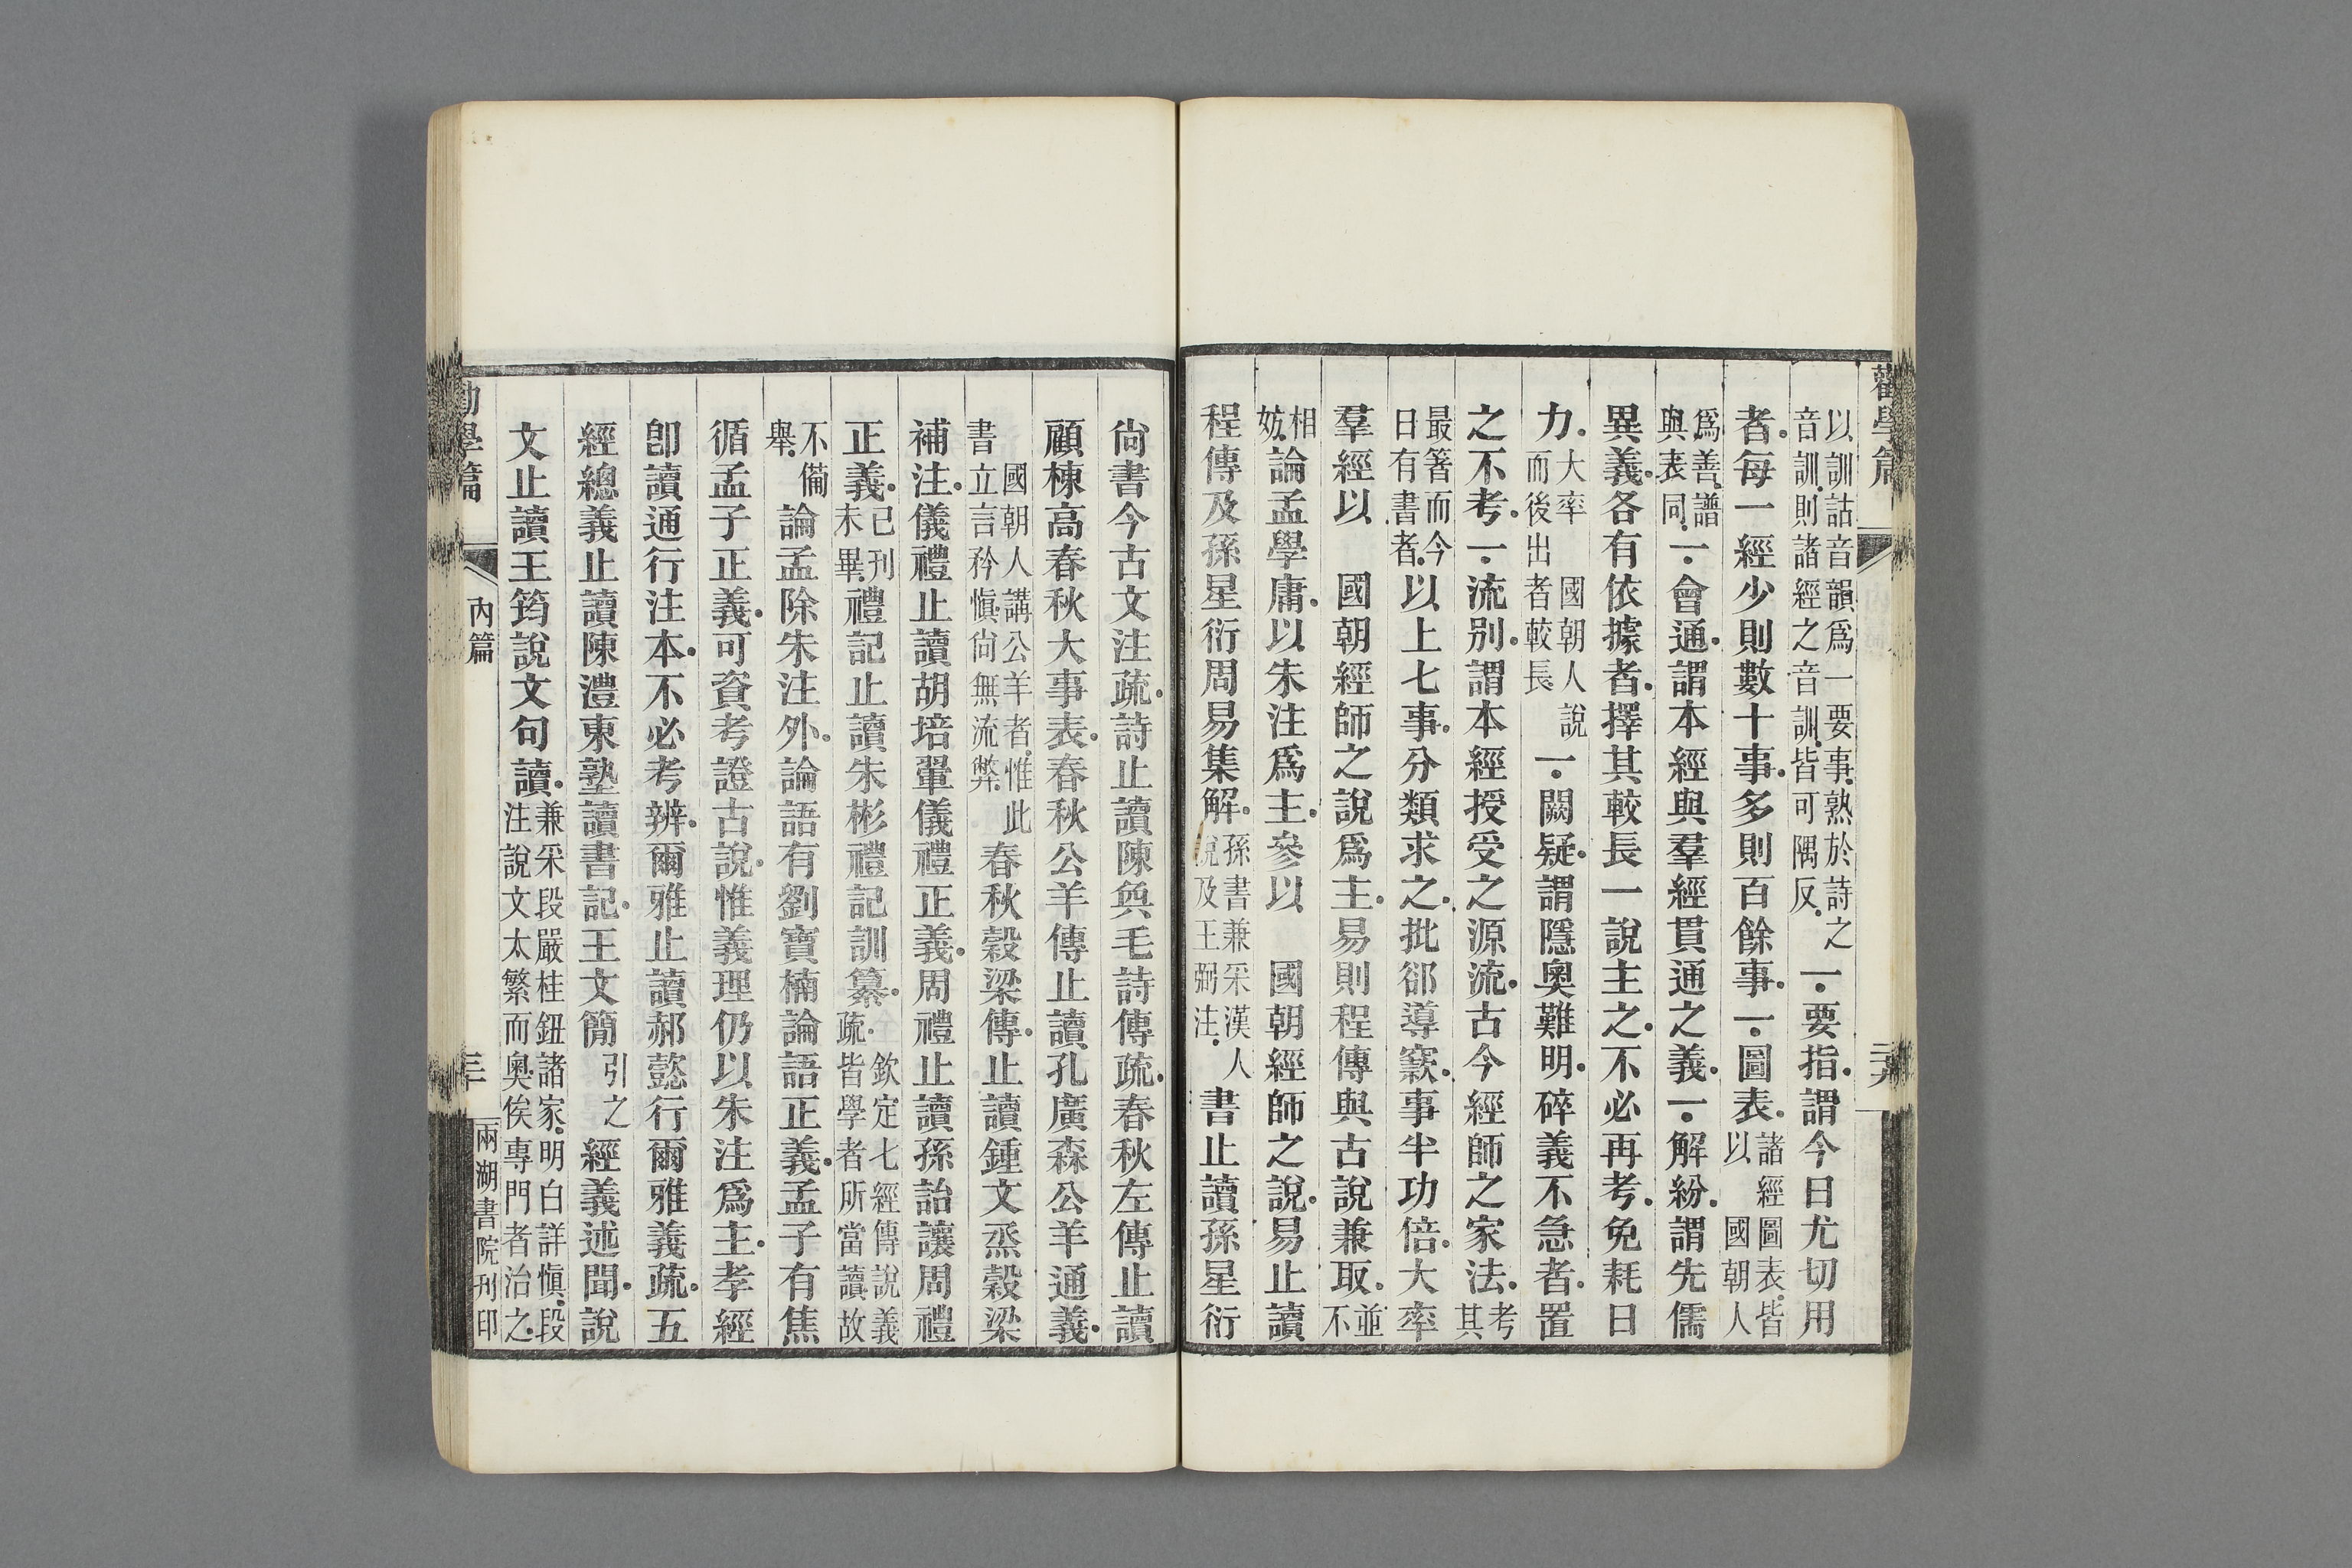 勸學篇
以訓詁音韻爲一要事熟於詩之
音訓則諸經之音訓皆可隅反
一要指謂今日尤切用
者每一經少則數十事多則百餘事一圖表
諸經圖表皆
以 國朝人
爲善譜
與表同
一會通謂本經與羣經貫通之義一解紛謂先儒
異義各有依據者擇其較長一說主之不必再考免耗日
力
大率 國朝人說
而後出者較長
一闕疑謂隱奧難明碎義不急者置
之不考一流別謂本經授受之源流古今經師之家法
考
其
最著而今
日有書者
以上七事分類求之批郤導窾事半功倍大率
羣經以 國朝經師之說爲主易則程傳與古說兼取
並
不
相
妨
論孟學庸以朱注爲主參以 國朝經師之說易止讀
程傳及孫星衍周易集解
孫書兼采漢人
說及王弼注
書止讀孫星衍
二九
尚書今古文注疏詩止讀陳奐毛詩傳疏春秋左傳止讀
顧棟高春秋大事表春秋公羊傳止讀孔廣森公羊通義
國朝人講公羊者惟此
書立言矜愼尚無流弊
春秋穀梁傳止讀鍾文烝穀梁
補注儀禮止讀胡培翬儀禮正義周禮止讀孫詒讓周禮
正義
已刊
未畢
禮記止讀朱彬禮記訓纂
欽定七經傳說義
疏皆學者所當讀故
不備
舉
論孟除朱注外論語有劉寶楠論語正義孟子有焦
循孟子正義可資考證古說惟義理仍以朱注爲主孝經
卽讀通行注本不必考辨爾雅止讀郝懿行爾雅義疏五
經總義止讀陳澧東塾讀書記王文簡
引
之
經義述聞說
文止讀王筠說文句讀
兼采段嚴桂鈕諸家明白詳愼段
注說文太繁而奧俟專門者治之
勸學篇 內篇 三十 兩湖書院刊印